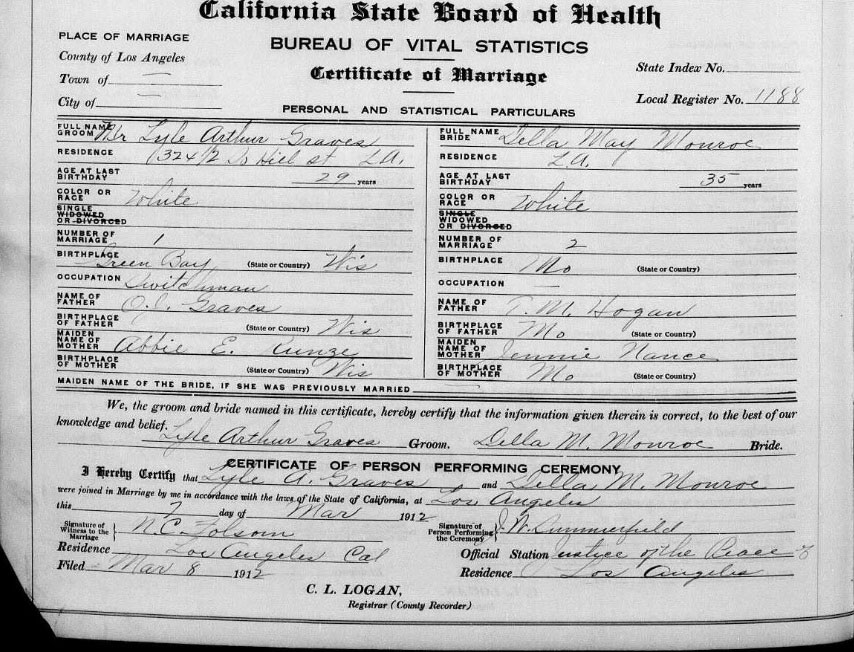 California State Board of Health
PLACE OF MARRIAGE
BUREAU OF VITAL STATISTICS
County of Los Angeles
State Index No.
Town of —
Certificate of Marriage
City of —
Local Register No. 1188
PERSONAL AND STATISTICAL PARTICULARS
FULL NAME GROOM Mr Lyle Arthur Graves
RESIDENCE 1324 1/2 So Hill st LA.
AGE AT LAST BIRTHDAY 29 years
COLOR OR RACE White
SINGLE WIDOWED OR DIVORCED
NUMBER OF MARRIAGE 1
BIRTHPLACE Green Bay (State or Country) Wis
OCCUPATION Switchman
NAME OF FATHER O.J. Graves
BIRTHPLACE OF FATHER (State or Country) Wis
MAIDEN NAME OF MOTHER Abbie E. Kunze
BIRTHPLACE OF MOTHER (State or Country) Wis
FULL NAME BRIDE Della May Monroe
RESIDENCE LA.
AGE AT LAST BIRTHDAY 35 years
COLOR OR RACE White
SINGLE WIDOWED OR DIVORCED
NUMBER OF MARRIAGE 2
BIRTHPLACE Mo (State or Country)
OCCUPATION —
NAME OF FATHER T. M. Hogan
BIRTHPLACE OF FATHER Mo (State or Country)
MAIDEN NAME OF MOTHER Jennie Nance
BIRTHPLACE OF MOTHER Mo (State or Country)
MAIDEN NAME OF THE BRIDE, IF SHE WAS PREVIOUSLY MARRIED
We, the groom and bride named in this certificate, hereby certify that the information given therein is correct, to the best of our
knowledge and belief.
Lyle Arthur Graves Groom. Della M. Monroe Bride.
CERTIFICATE OF PERSON PERFORMING CEREMONY
I Hereby Certify that Lyle A. Graves and Della M. Monroe
were joined in Marriage by me in accordance with the laws of the State of California, at Los Angeles
this 7 day of Mar 1912
Signature of Witness to the Marriage N.C. Folsom
Signature of Person Performing the Ceremony J. W. Summerfield
Residence Los Angeles Cal
Official Station Justice of the Peace
Filed Mar 8 1912
Residence Los Angeles
C. L. LOGAN,
Registrar (County Recorder)